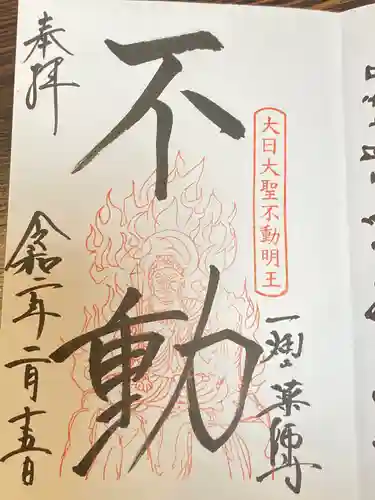 奉拝
不動
大日大聖不動明王
一畑山薬師寺
令和二年二月十五日